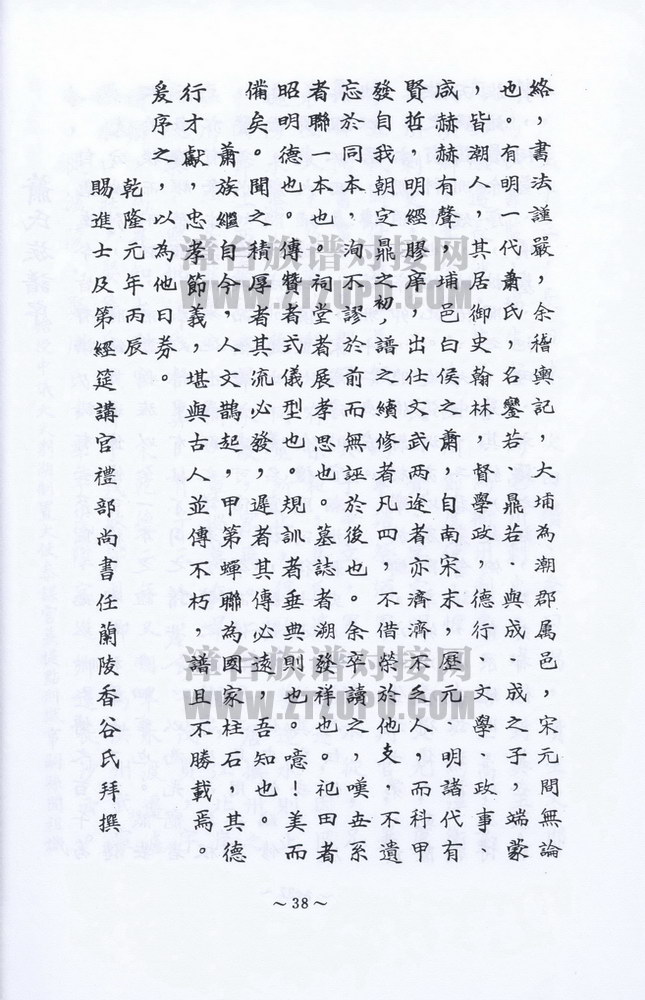 絡，書法謹嚴，余稽輿記，大埔為潮郡属邑，宋元間無論
也。有明一代蕭氏，名鑾若、鼎若．與成、成之子，端蒙
，皆潮人，其居御史翰林，督學政，德行、文學、政事
成赫赫有聲，埔邑白侯之蕭，自南宋末，歷元、明諸代有
賢哲，明經膠庠，出仕文武两途者亦濟濟不乏人，而科甲
發自我朝定鼎之初，譜之續修者凡四，不借榮於他支，不遺
忘於同本，洵不謬於前而無誣於後也。余卒讀之，嘆世系
者聯一本也。祠堂者展孝思也。墓誌者溯發祥也。祀田者
昭明德也。傳贊者式儀型也。規訓者垂典則也。噫！美而
備矣。聞之積厚者其流必發，遲者其傳必遠，吾知也。
蕭族繼自今，人文鵲起，甲第蟬聯為國家柱石，其德
行才獻，忠孝節義，堪與古人並傳不朽，譜且不勝載焉。
爰序之，以為他日券。
乾隆元年丙辰
賜進士及第經筵講官禮部尚書任蘭陵香谷氏拜撰
～38～
漳台族谱对接网
WWW.ZTZUPU.COM
漳台族谱对接网
WWW.ZTZUPU.COM